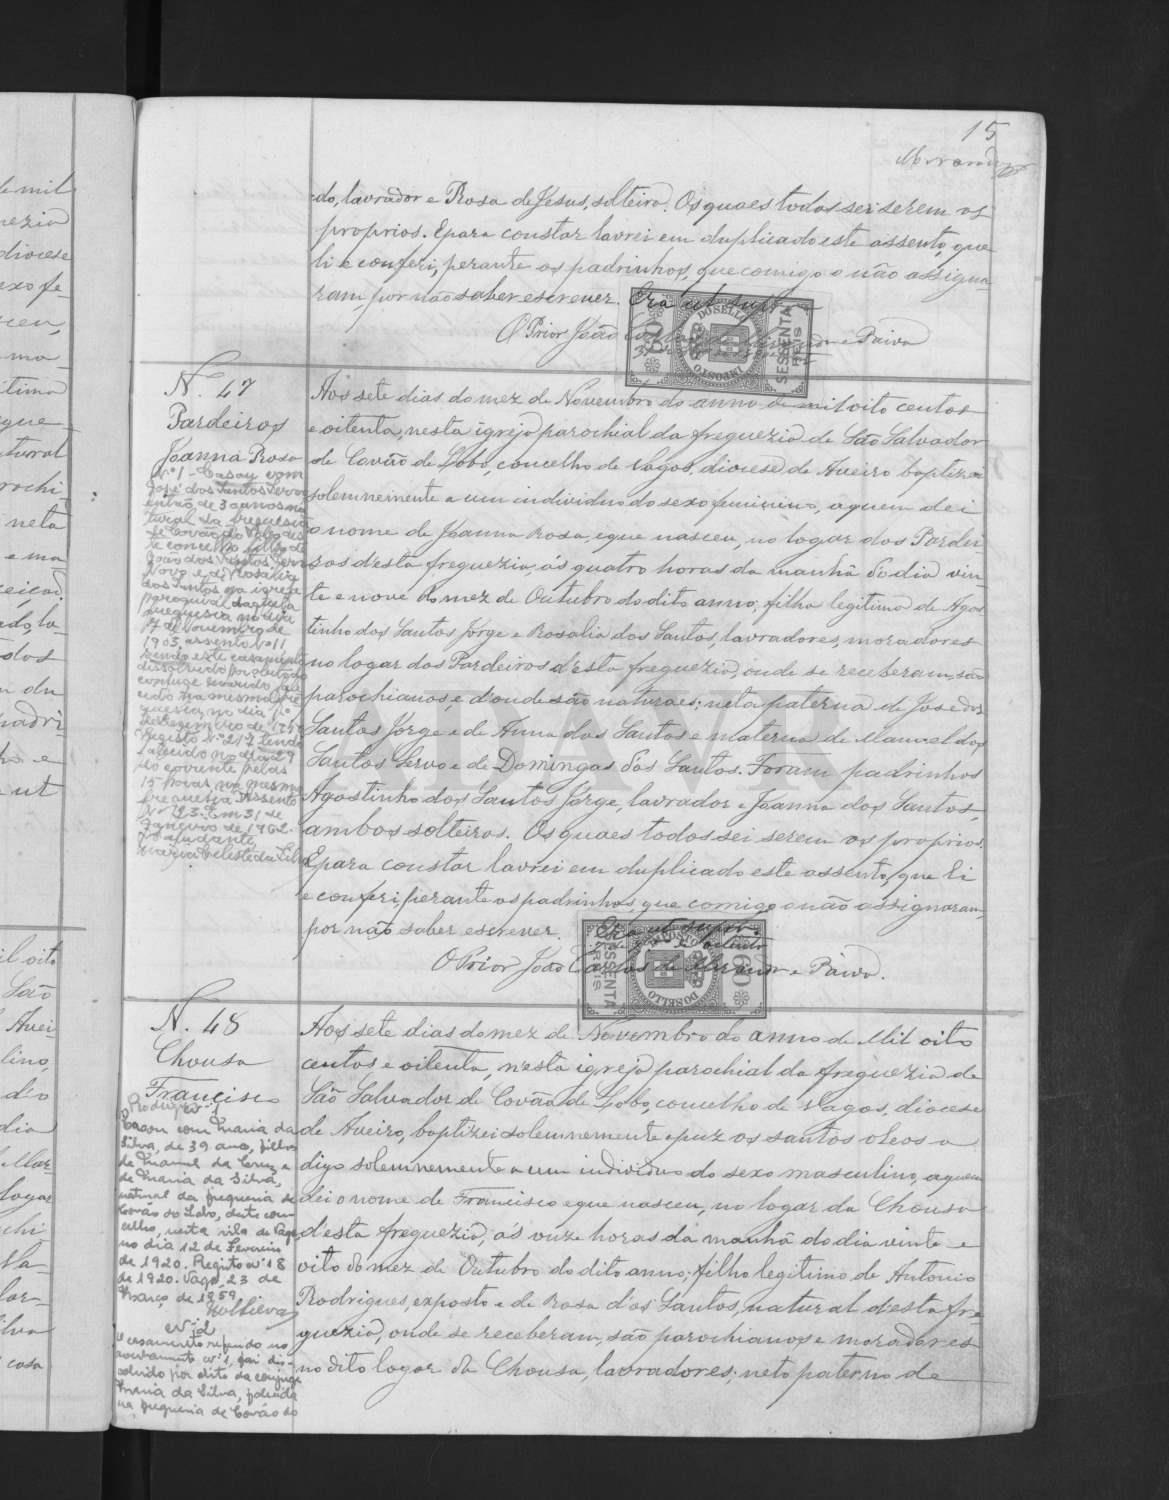 15
Miranda
do, lavrador e Rosa de Jesus, solteira. Os quaes todos sei serem os
proprios. E para constar lavrei em duplicado este assento, que
li e conferi, perante os padrinhos, que comigo o não assigna-
ram, por não saber escrever. Era ut supra
O Prior João e Paiva
IMPOSTO DO SELLO
SESSENTA REIS
60
N. 47
Pardeiros
Joanna Rosa
Nº 1 - Casou com
José dos Santos Servo
de 30 anos na-
tural da freguesia
de Covão do Lobo des-
te concelho filho de
João dos Santos Servo
Novo e de Rosalia
dos Santos na igreja
paroquial daquela
freguesia no dia
17 de Novembro de
1903, assento nº 11
sendo este casamento
dissolvido por óbito do
conjuge marido
na mesma fre-
guesia no dia
Registo Nº 217 tendo
falecido no dia 29
do corrente pelas
15 horas na mesma
freguesia Assento
Nº 23. Em 31 de
Janeiro de 1962.
O ajudante,
Maria Celeste da Silva
Aos sete dias do mez de Novembro do anno de mil oito centos
e oitenta, nesta igreja parochial da freguezia de São Salvador
de Covão de Lobo, concelho de Vagos, diocese de Aveiro baptizei
solemnemente a um individuo do sexo feminino, a quem dei
o nome de Joanna Rosa, e que nasceu, no logar dos Pardei-
ros d'esta freguezia, ás quatro horas da manhã do dia vin-
te e nove do mez de Outubro do dito anno; filha legitima de Agos-
tinho dos Santos Jorge e Rosalia dos Santos, lavradores, moradores
no logar dos Pardeiros d'esta freguezia, onde se receberam, são
parochianos e d'onde são naturaes; neta paterna de Jose dos
Santos Jorge e de Anna dos Santos e materna de Manuel dos
Santos Servo e de Domingas dos Santos. Foram padrinhos
Agostinho dos Santos Jorge, lavrador e Joanna dos Santos,
ambos solteiros. Os quaes todos sei serem os proprios.
E para constar lavrei em duplicado este assento, que li
e conferi, perante os padrinhos, que comigo o não assignaram,
por não saber escrever. Era ut supra
O Prior João Carlos de Miranda e Paiva.
IMPOSTO DO SELLO
SESSENTA REIS
60
ADAVR
N. 48
Chousa
Francisco
Rodrigues
Nº 1
Casou com Maria da
Silva, de 39 anos, filha
de Manuel da Cruz e
de Maria da Silva,
natural da freguesia de
Covão do Lobo, deste con-
celho, nesta vila de Vagos
no dia 12 de Fevereiro
de 1920. Registo nº 18
de 1920. Vagos, 23 de
Março de 1959
Nº 2
O casamento referido no
averbamento nº 1, foi dis-
solvido por óbito da conjuge
Maria da Silva, falecida
na freguesia de Covão do
Aos sete dias do mez de Novembro do anno de Mil oito
centos e oitenta, n'esta igreja parochial da freguezia de
São Salvador de Covão de Lobo, concelho de Vagos, diocese
de Aveiro, baptizei solemnemente e puz os santos oleos a
digo solemnemente a um individuo do sexo masculino, a quem
dei o nome de Francisco e que nasceu, no logar da Chousa
d'esta freguezia, ás onze horas da manhã do dia vinte e
oito do mez de Outubro do dito anno; filho legitimo de Antonio
Rodrigues, exposto e de Rosa dos Santos, natural d'esta fre-
guezia, onde se receberam, são parochianos e moradores
no dito logar da Chousa, lavradores; neto paterno de